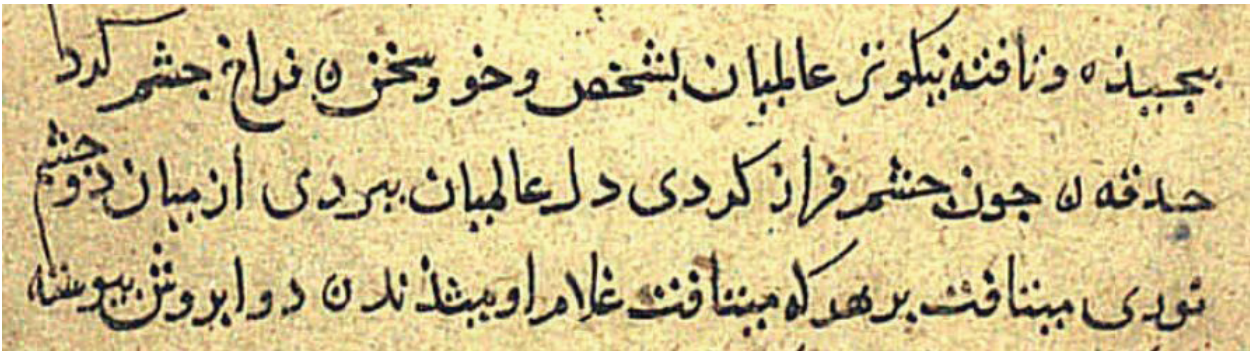 بیجیبیذه و نافته نیکوتر عالمیان بشخص و خو و سخن ن فراخ جشم گرد
حدقه ن جون جشم فراز کردی دل عالمیان ببردی از میان دو جشم
نوری میتافت بر هر که میتافت غلام او میشذند ن دو ابروش بیوسته